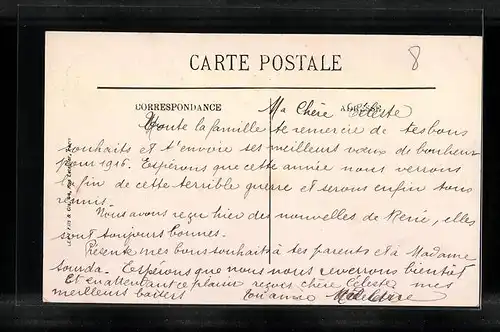 8
CARTE POSTALE
CORRESPONDANCE
ADRESSE
Ma Chère Céleste
Toute la famille te remercie de tes bons
souhaits et t'envoie ses meilleurs vœux de bonheur
pour 1916. Espérons que cette année nous verrons
la fin de cette terrible guerre et serons enfin tous
réunis.
Nous avons reçu hier des nouvelles de René, elles
sont toujours bonnes.
Présente mes bons souhaits à tes parents et à Madame
Espérons que nous nous reverrons bientôt
Et en attendant ce plaisir reçois chère Céleste mes
meilleurs baisers Ton amie